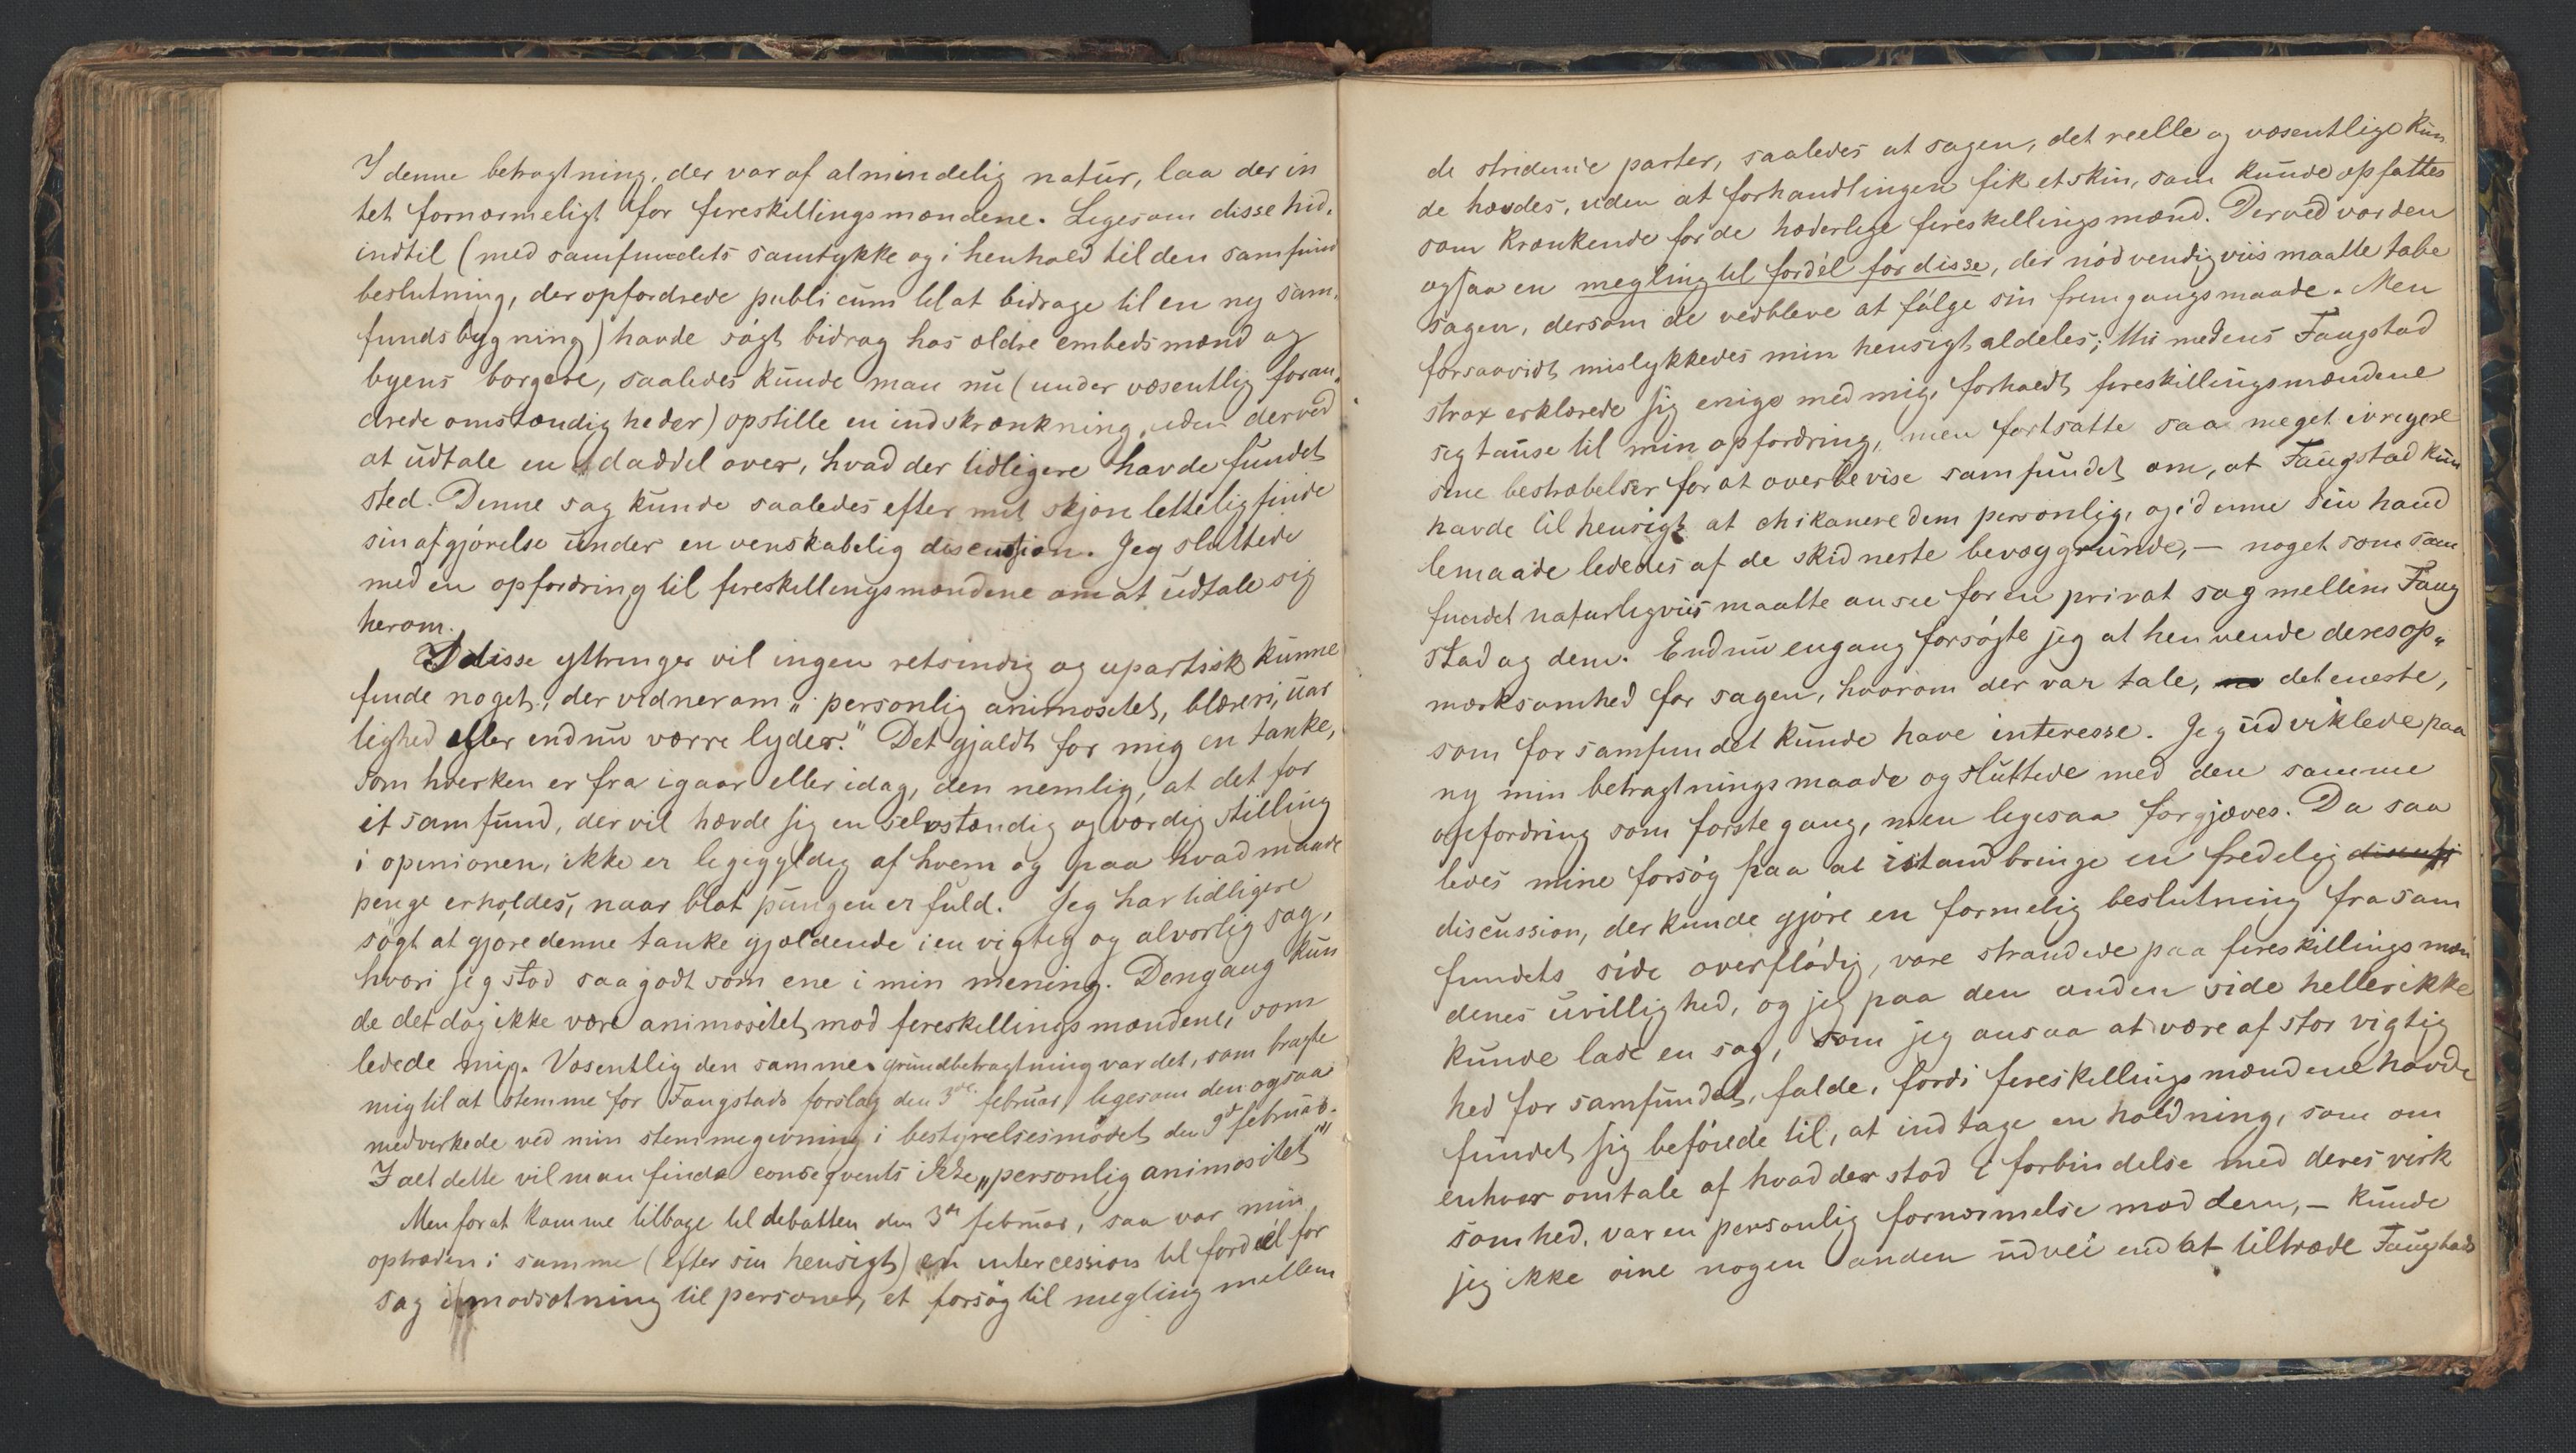 I denne betragtning, der var af almindelig natur, laa der in
tet fornærmeligt for fireskillingsmændene. Ligesom disse hid,
indtil (med samfundets samtykke og i henhold til den samfund
beslutning, der opfordrede publicum til at bidrage til en ny sam,
fundsbygning) havde søgt bidrag hos ældre embedsmænd og
byens borgere, saaledes kunde man nu (under væsentlig foran,
drede omstændigheder) opstille en indskrænkning, uden derved
at udtale en daddel over, hvad der tidligere havde fundet
sted. Denne sag kunde saaledes efter mit skjøn lettelig finde
sin afgjørelse under en venskabelig discussion. Jeg sluttede
med en opfordring til fireskillingsmændene om at udtale sig
herom.
I disse yttringer vil ingen retsindig og upartisk kunne
finde noget, der vidner om „personlig animositet, blæreri, uær
lighed eller endnu værre lyder." Det gjaldt for mig en tanke,
som hverken er fra igaar eller idag, den nemlig, at det for
et samfund, der vil hævde sig en selvstændig og værdig stilling
i opinionen, ikke er ligegyldig af hvem og paa hvad maade
penge erholdes, naar blot pungen er fuld. Jeg har tidligere
søgt at gjøre denne tanke gjældende i en vigtig og alvorlig sag,
hvori jeg stod saagodt som ene i min mening. Dengang kun
de det dog ikke være animositet mod fireskillingsmændene, som
ledede mig. Væsentlig den samme grundbetragtning var det, som bragte
mig til at stemme for Faugstads forslag den 3de februar, ligesom den ogsaa
medvirkede ved min stemmegivning i bestyrelsesmødet den 9d februar.
I alt dette vil man finde conseqvents ikke „personlig animositet"
Men for at komme tilbage til debatten den 3de februar, saa var min
optræden i samme (efter sin hensigt) en intercession til fordel for
sag i modsætning til personer, et forsøg til megling mellem
de stridende parter, saaledes at sagen, det reelle og væsentlige kun
de hævdes, uden at forhandlingen fik et skin, som kunde opfattes
som krænkende for de hæderlige fireskillingsmænd. Derved var den
ogsaa en megling til fordel for disse, der nødvendigviis maatte tabe
sagen, dersom de vedbleve at følge sin fremgangsmaade. Men
forsaavidt mislykkedes min hensigt aldeles; thi medens Faugstad
strax erklærede sig enige med mig, forholdt fireskillingsmændene
sig tause til min opfordring, men fortsatte saa meget ivrigere
sine bestræbelser for at overbevise samfundet om, at Faugstad kun
havde til hensigt at chikanere dem personlig, og i denne sin hand
lemaade lededes af de skidneste bevæggrunde, — noget som sam
fundet naturligviis maatte ansee for en privat sag mellem Faug
stad og dem. Endnu engang forsøgte jeg at henvende deres op„
mærksomhed for sagen, hvorom der var tale, det eneste,
som for samfundet kunde have interesse. Jeg udviklede paa
ny min betragtningsmaade og sluttede med den samme
opfordring som første gang, men ligesaa forgjæves. Da saa
ledes mine forsøg paa at istandbringe en fredelig discussi
discussion, der kunde gjøre en formelig beslutning fra sam
fundets side overflødig, vare strandede paa fireskillingsmæn
denes uvillighed, og jeg paa den anden side heller ikke
kunde lade en sag, som jeg ansaa at være af stor vigtig
hed for samfundet, falde, fordi fireskillingsmændene havde
fundet sig beføiede til, at indtage en holdning, som om
enhver omtale af hvad der stod i forbindelse med deres virk
somhed, var en personlig fornærmelse mod dem, — kunde
jeg ikke øine nogen anden udvei end at tiltræde Faugstads